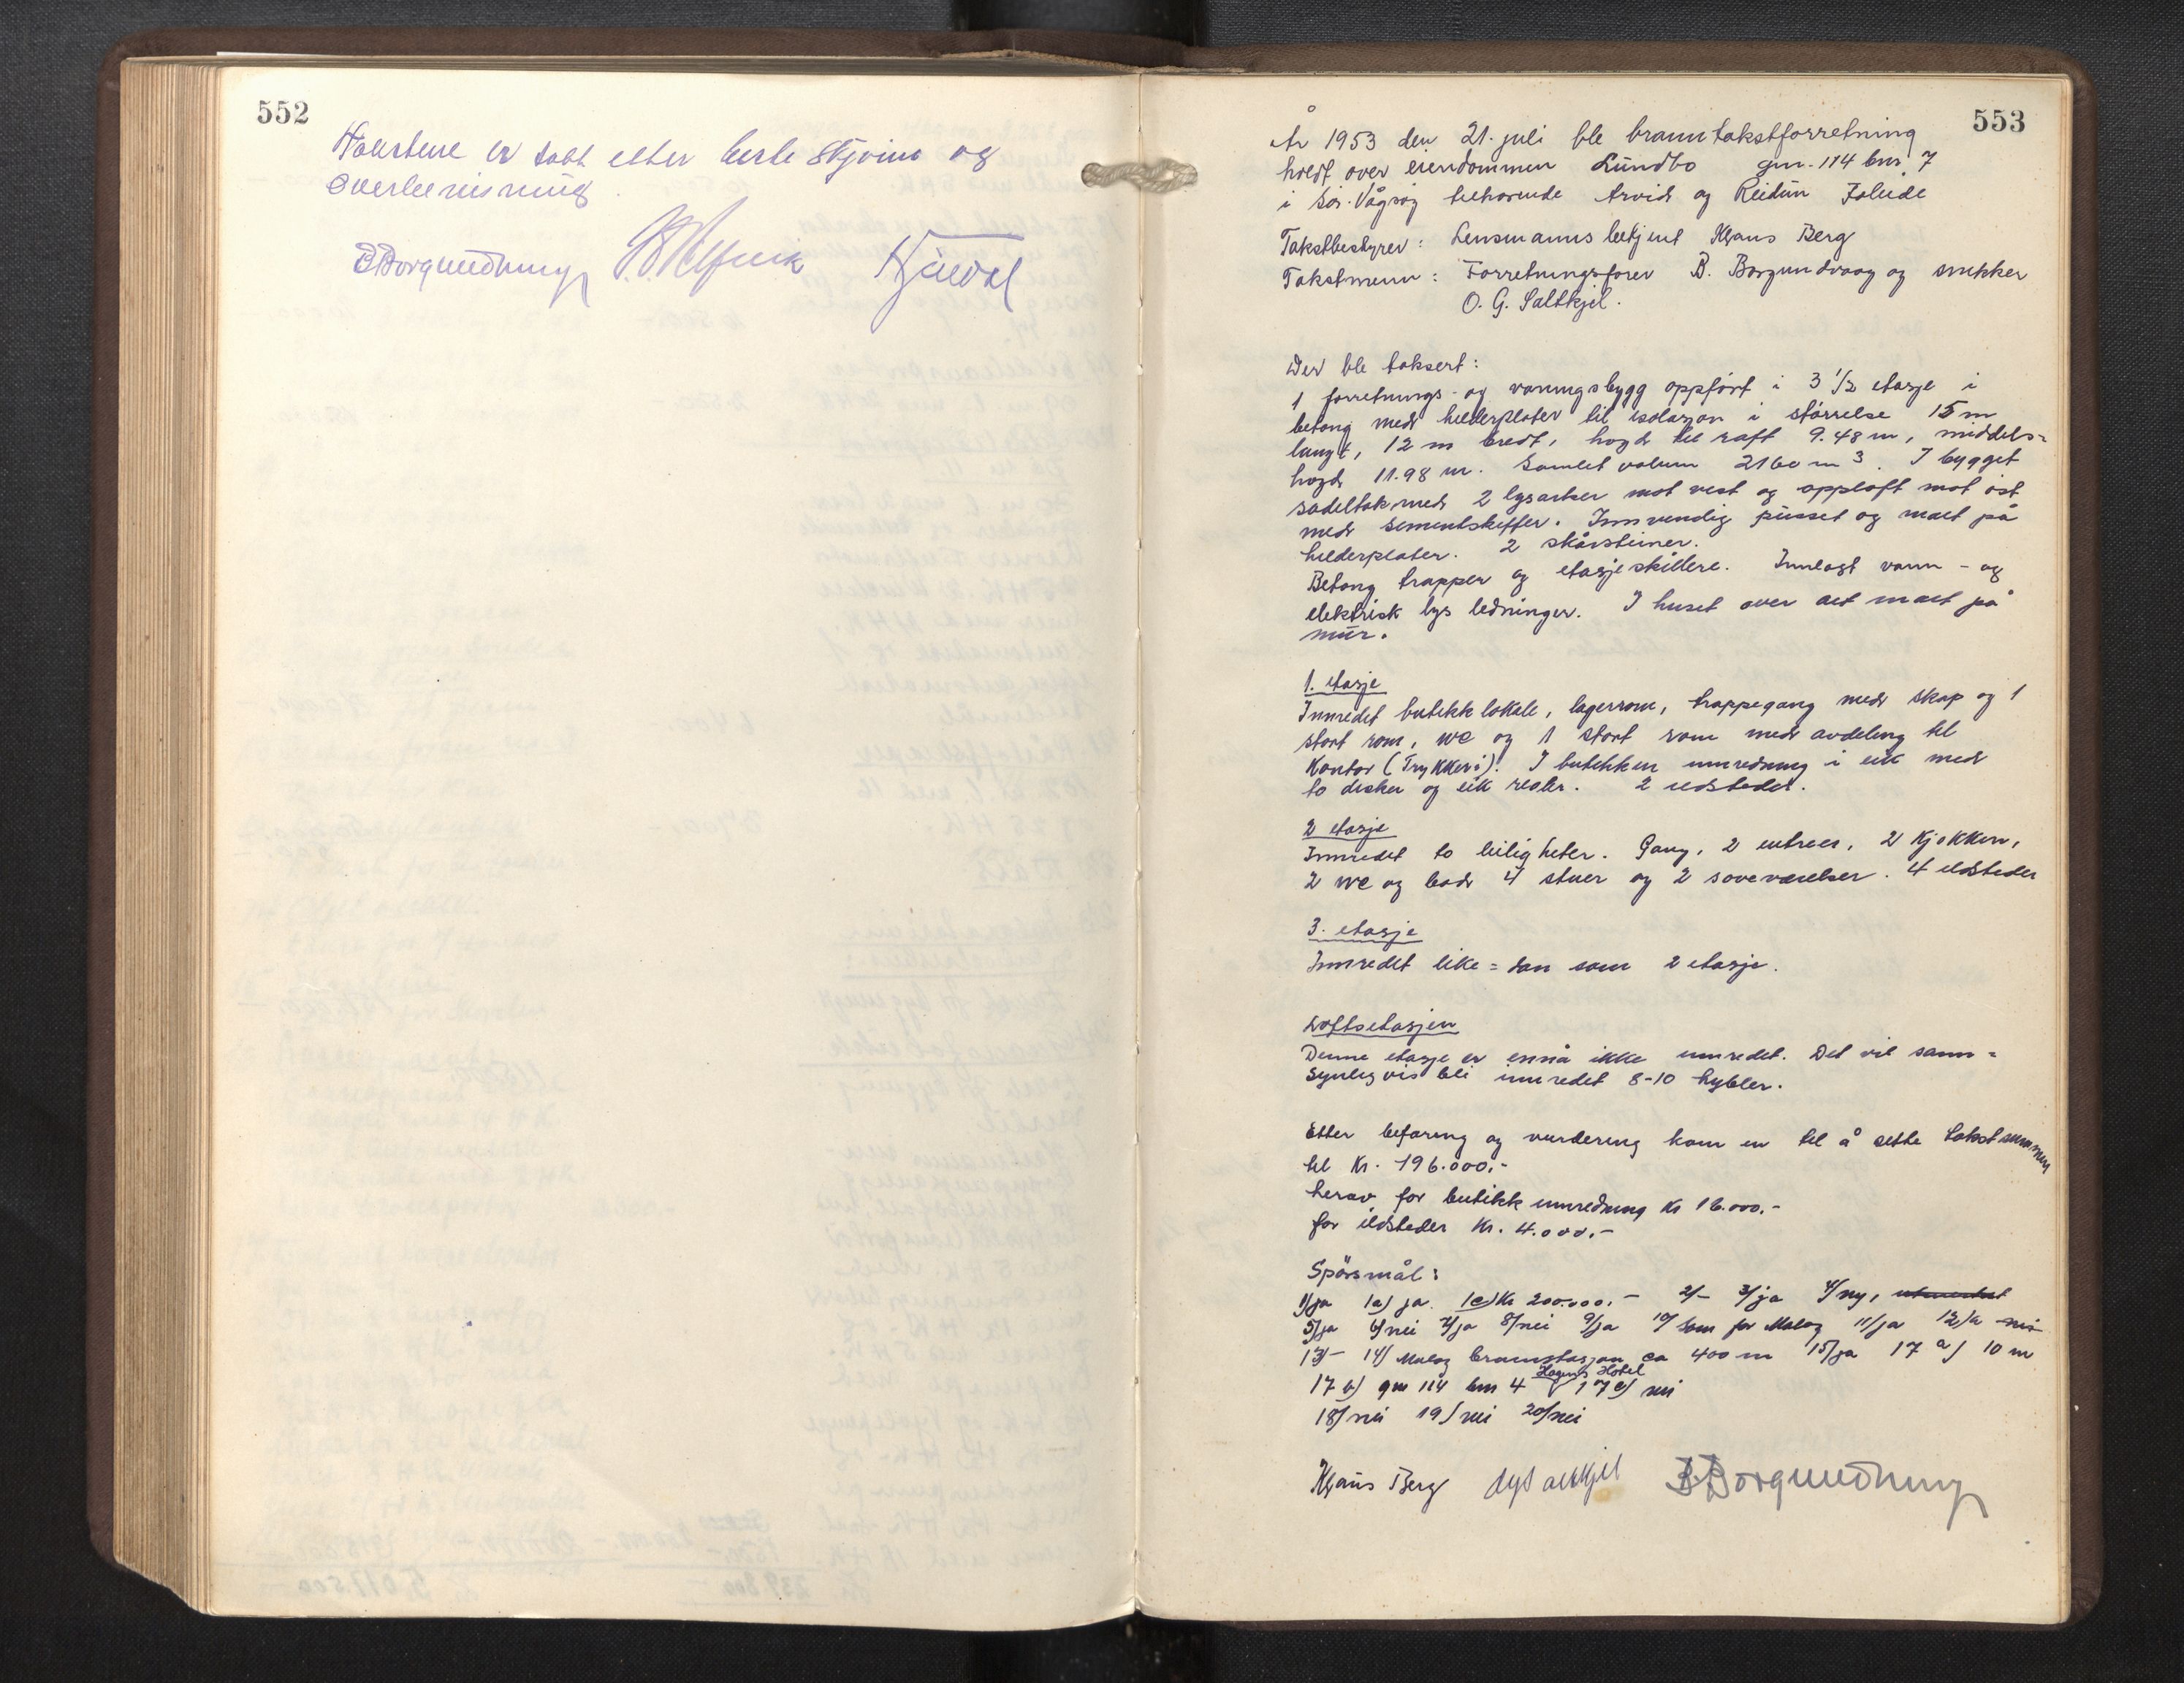 552
Takstene er satt etter beste skjønn og
overbevisning.
BBorgundvaag
553
År 1953 den 21. juli ble branntakstforretning
holdt over eiendommen Lundbo gnr. 114 bnr. 7
i Sør-Vågsøy tilhørende Arvid og Reidun
Takstbestyrer: Lensmannsbetjent Klaus Berg
Takstmenn: Forretningsfører B. Borgundvaag og snikker
O. G. Saltkjel.
Der ble taksert:
1 forretnings- og våningsbygg oppført i 3 1/2 etasje i
betong med hulderplater til isolasjon i størrelse 15 m
langt, 12 m bredt, høgd til raft 9.48 m, middels=
høgd 11.98 m. Samlet volum 2160 m3. I bygget
sadeltak med 2 lysarker mot vest og oppløft mot øst
med sementskiffer. Innvendig pusset og malt på
hulderplater. 2 skårsteiner.
Betong trapper og etasjeskillere. Innlagt vann- og
elektrisk lys ledninger. I huset over alt malt på
mur.
1. etasje
Innredet butikklokale, lagerrom, trappegang med skap og 1
stort rom, WC og 1 stort rom med avdeling til
Kontor (Trykkeri). I butikken innredning i eik med
to disker og eik reoler. 2 ildsteder.
2 etasje
Innredet to leiligheter. Gang, 2 entreer, 2 kjøkken,
2 WC og bad 4 stuer og 2 soveværelser. 4 ildsteder
3. etasje
Innredet like=dan som 2 etasje.
Loftsetasjen
Denne etasje er ennå ikke innredet. Det vil sann=
synligvis bli innredet 8-10 hybler.
Etter befaring og vurdering kom en til å sette takstsummen
til Kr. 196.000.-
herav for butikkinnredning Kr 16.000.-
for ildsteder Kr. 4.000.-
Spörsmål:
1/ja 1a) ja. 1c) Kr 200.000.- 2/- 3/ja 4/ny,
5/ja 6/nei 7/ja 8/nei 9/ja 10/ som for Måløy 11/ja 12/a nei
13/- 14/ Måløy brannstasjon ca 400 m 15/ja 17 a/ 10 m
17 b) gnr 114 bnr 4 Hagens Hotel 17c) nei
18/nei 19/nei 20/nei
Klaus Berg OGSaltkjel BBorgundvaag